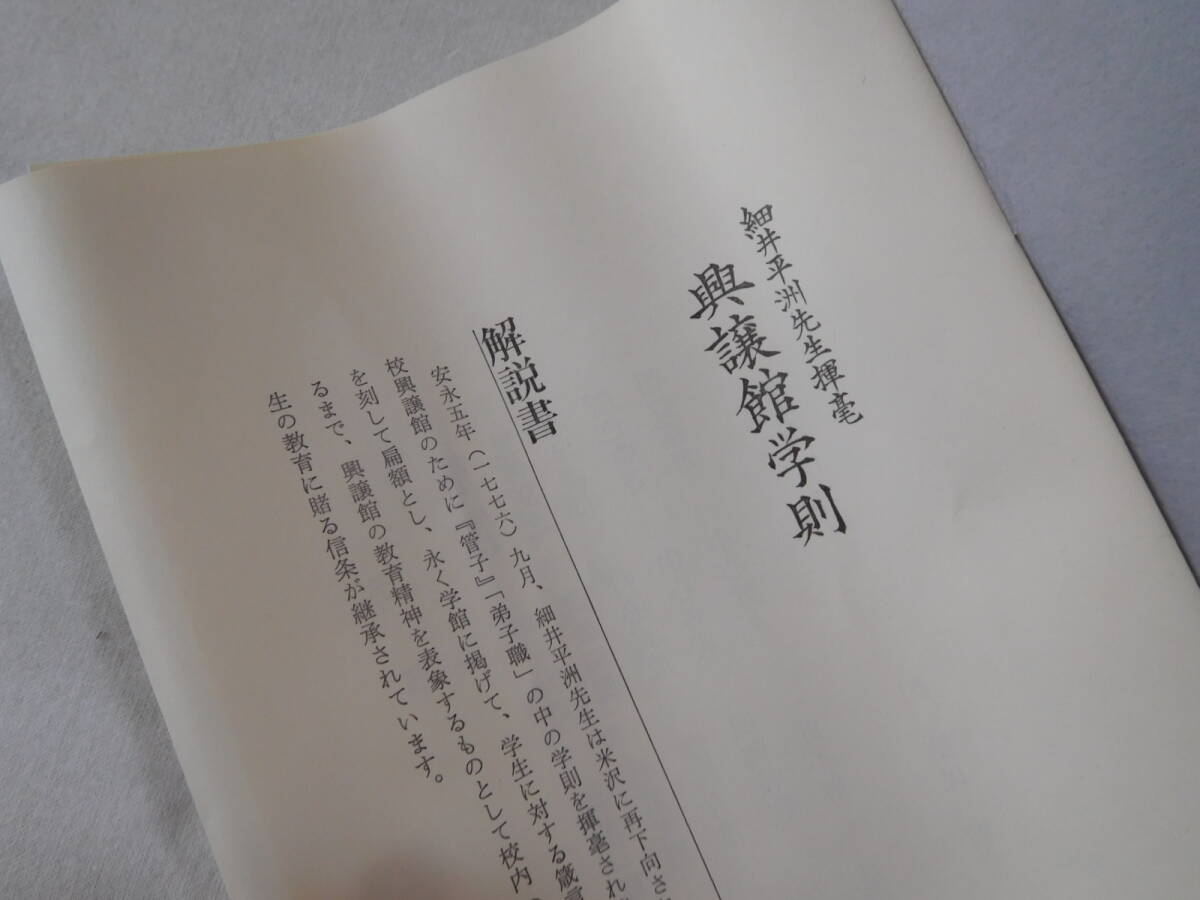 細井平洲先生揮毫
興譲館学則
解説書
安永五年（一七七六）九月、細井平洲先生は米沢に再下向さ
校興譲館のために『管子』「弟子職」の中の学則を揮毫され
を刻して扁額とし、永く学館に掲げて、学生に対する箴言
るまで、興譲館の教育精神を表象するものとして校内
生の教育に賭る信条が継承されています。